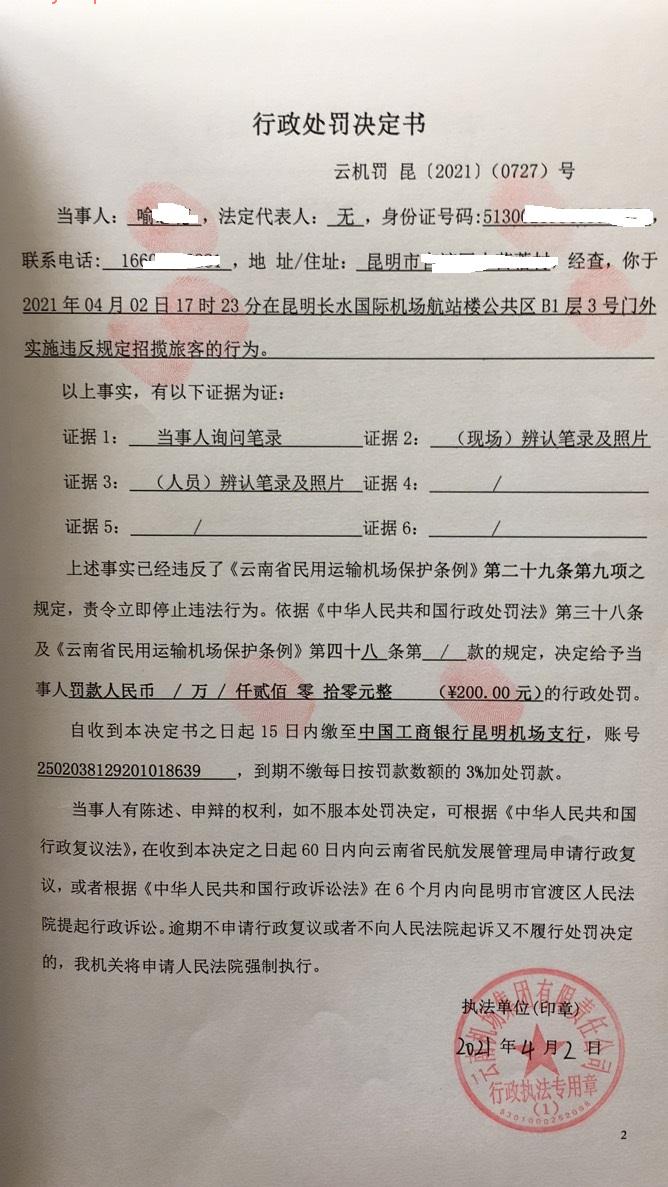 行政处罚决定书
云机罚 昆〔2021〕（0727）号
当事人：喻，法定代表人：无，身份证号码:5130
联系电话：166，地 址/住址：昆明市 经查，你于
2021年04月02日17时23分在昆明长水国际机场航站楼公共区B1层3号门外
实施违反规定招揽旅客的行为。
以上事实，有以下证据为证：
证据1：当事人询问笔录 证据2：（现场）辨认笔录及照片
证据3：（人员）辨认笔录及照片 证据4： /
证据5： / 证据6： /
上述事实已经违反了《云南省民用运输机场保护条例》第二十九条第九项之
规定，责令立即停止违法行为。依据《中华人民共和国行政处罚法》第三十八条
及《云南省民用运输机场保护条例》第四十八条第 / 款的规定，决定给予当
事人罚款人民币 / 万 / 仟贰佰 零 拾零元整 （¥200.00元）的行政处罚。
自收到本决定书之日起15日内缴至中国工商银行昆明机场支行，账号
2502038129201018639，到期不缴每日按罚款数额的3%加处罚款。
当事人有陈述、申辩的权利，如不服本处罚决定，可根据《中华人民共和国
行政复议法》，在收到本决定之日起60日内向云南省民航发展管理局申请行政复
议，或者根据《中华人民共和国行政诉讼法》在6个月内向昆明市官渡区人民法
院提起行政诉讼。逾期不申请行政复议或者不向人民法院起诉又不履行处罚决定
的，我机关将申请人民法院强制执行。
执法单位(印章)
2021年4月2日
云南机场集团有限责任公司
行政执法专用章
(1)
2